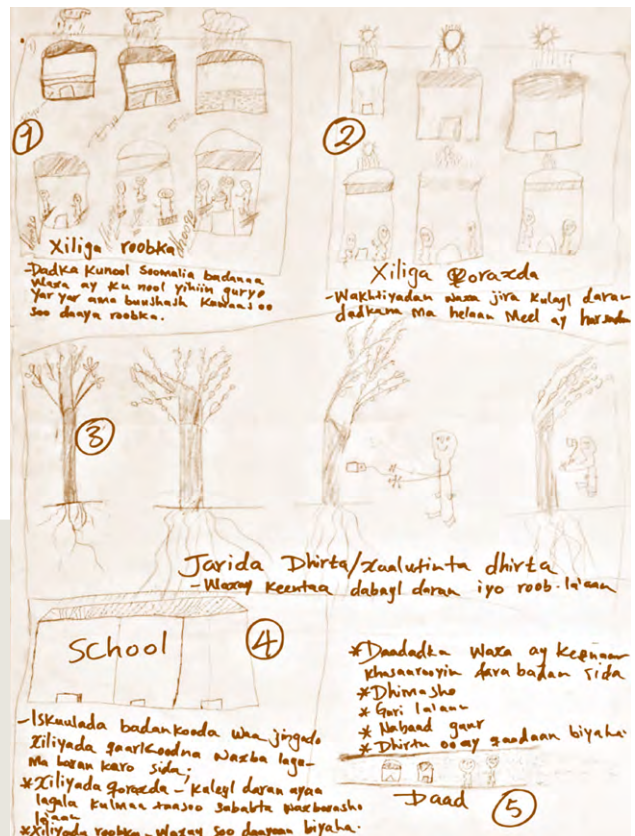 1
Xiliga roobka
-Dadka Kunool Soomalia badanaa
Waxa ay ku nool yihiin guryo
Yar yar ama buushash Kawaas oo
Soo daaya roobka.
2
Xiliga Qoraxda
-Wakhtiyadan waxa jira Kulayl daran
dadkana ma helaan Meel ay harsadaan
3
Jarida Dhirta/xaalufinta dhirta
-Waxay Keentaa dabayl daran iyo roob-la'aan
School
4
-Iskuulada badankooda waa jingado
Xiliyada qaarkoodna waxba laga-
Ma baran karo sida;
*Xiliyada qoraxda - Kuleyl daran ayaa
lagala kulmaa taasoo sababta waxbarasho
la'aan
*Xiliyada roobka - Waxay Soo daayaan biyaha.
*Daadadka Waxa ay Keenaan
Khasaarooyin dara badan Sida
*Dhimasho
*Guri la'aan
*Nabaad guur
*Dhirtu oo ay qaadaan biyaha
Daad
5